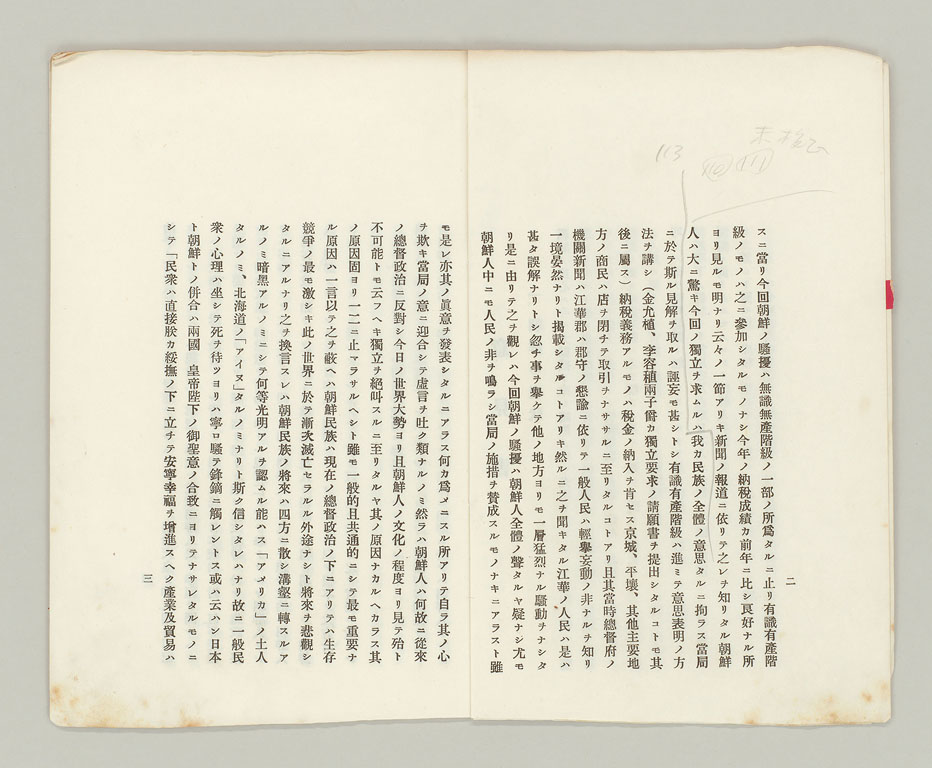 スニ當リ今回朝鮮ノ騷擾ハ無識無產階級ノ一部ノ所爲タルニ止リ有識有產階
級ノモノハ之ニ參加シタルモノナシ今年ノ納稅成績カ前年ニ比シ良好ナル所
ヨリ見ルモ明ナリ云々ノ一節アリキ新聞ノ報道ニ依リテ之レヲ知リタル朝鮮
人ハ大ニ驚キ今回ノ獨立ヲ求ムルハ我カ民族ノ全體ノ意思タルニ拘ラス當局
ニ於テ斯ル見解ヲ取ルハ誣妄モ甚シトシ有識有產階級ハ進ミテ意思表明ノ方
法ヲ講シ(金允植、李容稙兩子爵カ獨立要求ノ請願書ヲ提出シタルコトモ其
後ニ屬ス)納稅義務アルモノハ稅金ノ納入ヲ肯セス京城、平壤、其他主要地
方ノ商民ハ店ヲ閉チテ取引ヲナササルニ至リタルコトアリ且其當時總督府ノ
機關新聞ハ江華郡ハ郡守ノ懇諭ニ依リテ一般人民ハ輕擧妄動ノ非ナルヲ知リ
一境晏然タリト揭載シタルコトアリキ然ルニ之ヲ聞キタル江華ノ人民ハ是ハ
甚タ誤解ナリトシ忽チ事ヲ擧ケテ他ノ地方ヨリモ一層猛烈ナル騷動ヲナシタ
リ是ニ由リテ之ヲ觀レハ今回朝鮮ノ騷擾ハ朝鮮人全體ノ聲タルヤ疑ナシ尤モ
朝鮮人中ニモ人民ノ非ヲ鳴ラシ當局ノ施措ヲ賛成スルモノナキニアラスト雖
二
113
モ是レ亦其ノ眞意ヲ發表シタルニアラス何カ爲メニスル所アリテ自ラ其ノ心
ヲ欺キ當局ノ意ニ迎合シテ虛言ヲ吐ク類ナルノミ然ラハ朝鮮人ハ何故ニ從來
ノ總督政治ニ反對シ今日ノ世界大勢ヨリ且朝鮮人ノ文化ノ程度ヨリ見テ殆ト
不可能トモ云フヘキ獨立ヲ絕叫スルニ至リタルヤ其ノ原因ナカルヘカラス其
ノ原因固ヨリ一二ニ止マラサルヘシト雖モ一般的且共通的ニシテ最モ重要ナ
ル原因ハ一言以テ之ヲ蔽ヘハ朝鮮民族ハ現在ノ總督政治ノ下ニアリテハ生存
競爭ノ最モ激シキ此ノ世界ニ於テ漸次滅亡セラルル外途ナシト將來ヲ悲觀シ
タルニアルナリ之ヲ換言スレハ朝鮮民族ノ將來ハ四方ニ散シ溝壑ニ轉スルア
ルノミ暗黑アルノミニシテ何等光明アルヲ認ムル能ハス「アメリカ」ノ土人
タルノミ、北海道ノ「アイヌ」タルノミナリト斯ク信シタレハナリ故ニ一般民
衆ノ心理ハ坐シテ死ヲ待ツヨリハ寧ロ騷テ鋒鏑ニ觸レントス或ハ云ハン日本
ト朝鮮トノ併合ハ兩國 皇帝陛下ノ御聖意ノ合致ニヨリテナサレタルモノニ
シテ「民衆ハ直接朕カ綏撫ノ下ニ立チテ安寧幸福ヲ增進スヘク產業及貿易ハ
三